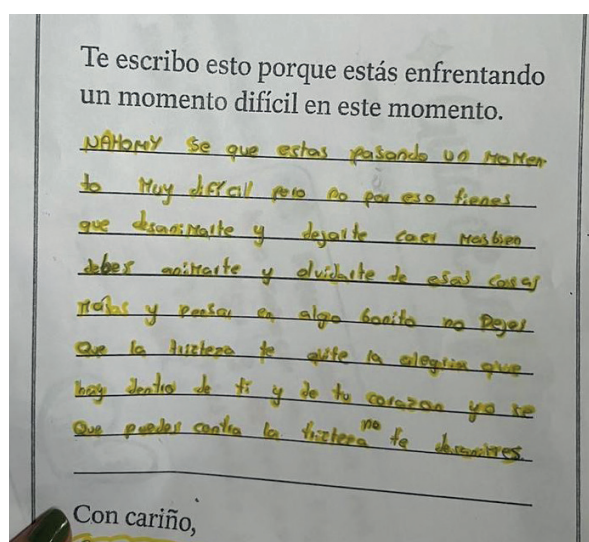 Te escribo esto porque estás enfrentando
un momento difícil en este momento.
NAHOMY se que estas pasando un momen
to Muy dificil pero no por eso tienes
que desanimarte y dejarte caer masbien
debes animarte y olvidarte de esas cosas
malas y pensar en algo bonito no Dejes
Que la trizteza te quite la alegria que
hay dentro de ti y de tu corazon yo se
Que puedes contra la trizteza no te desanimes.
Con cariño,